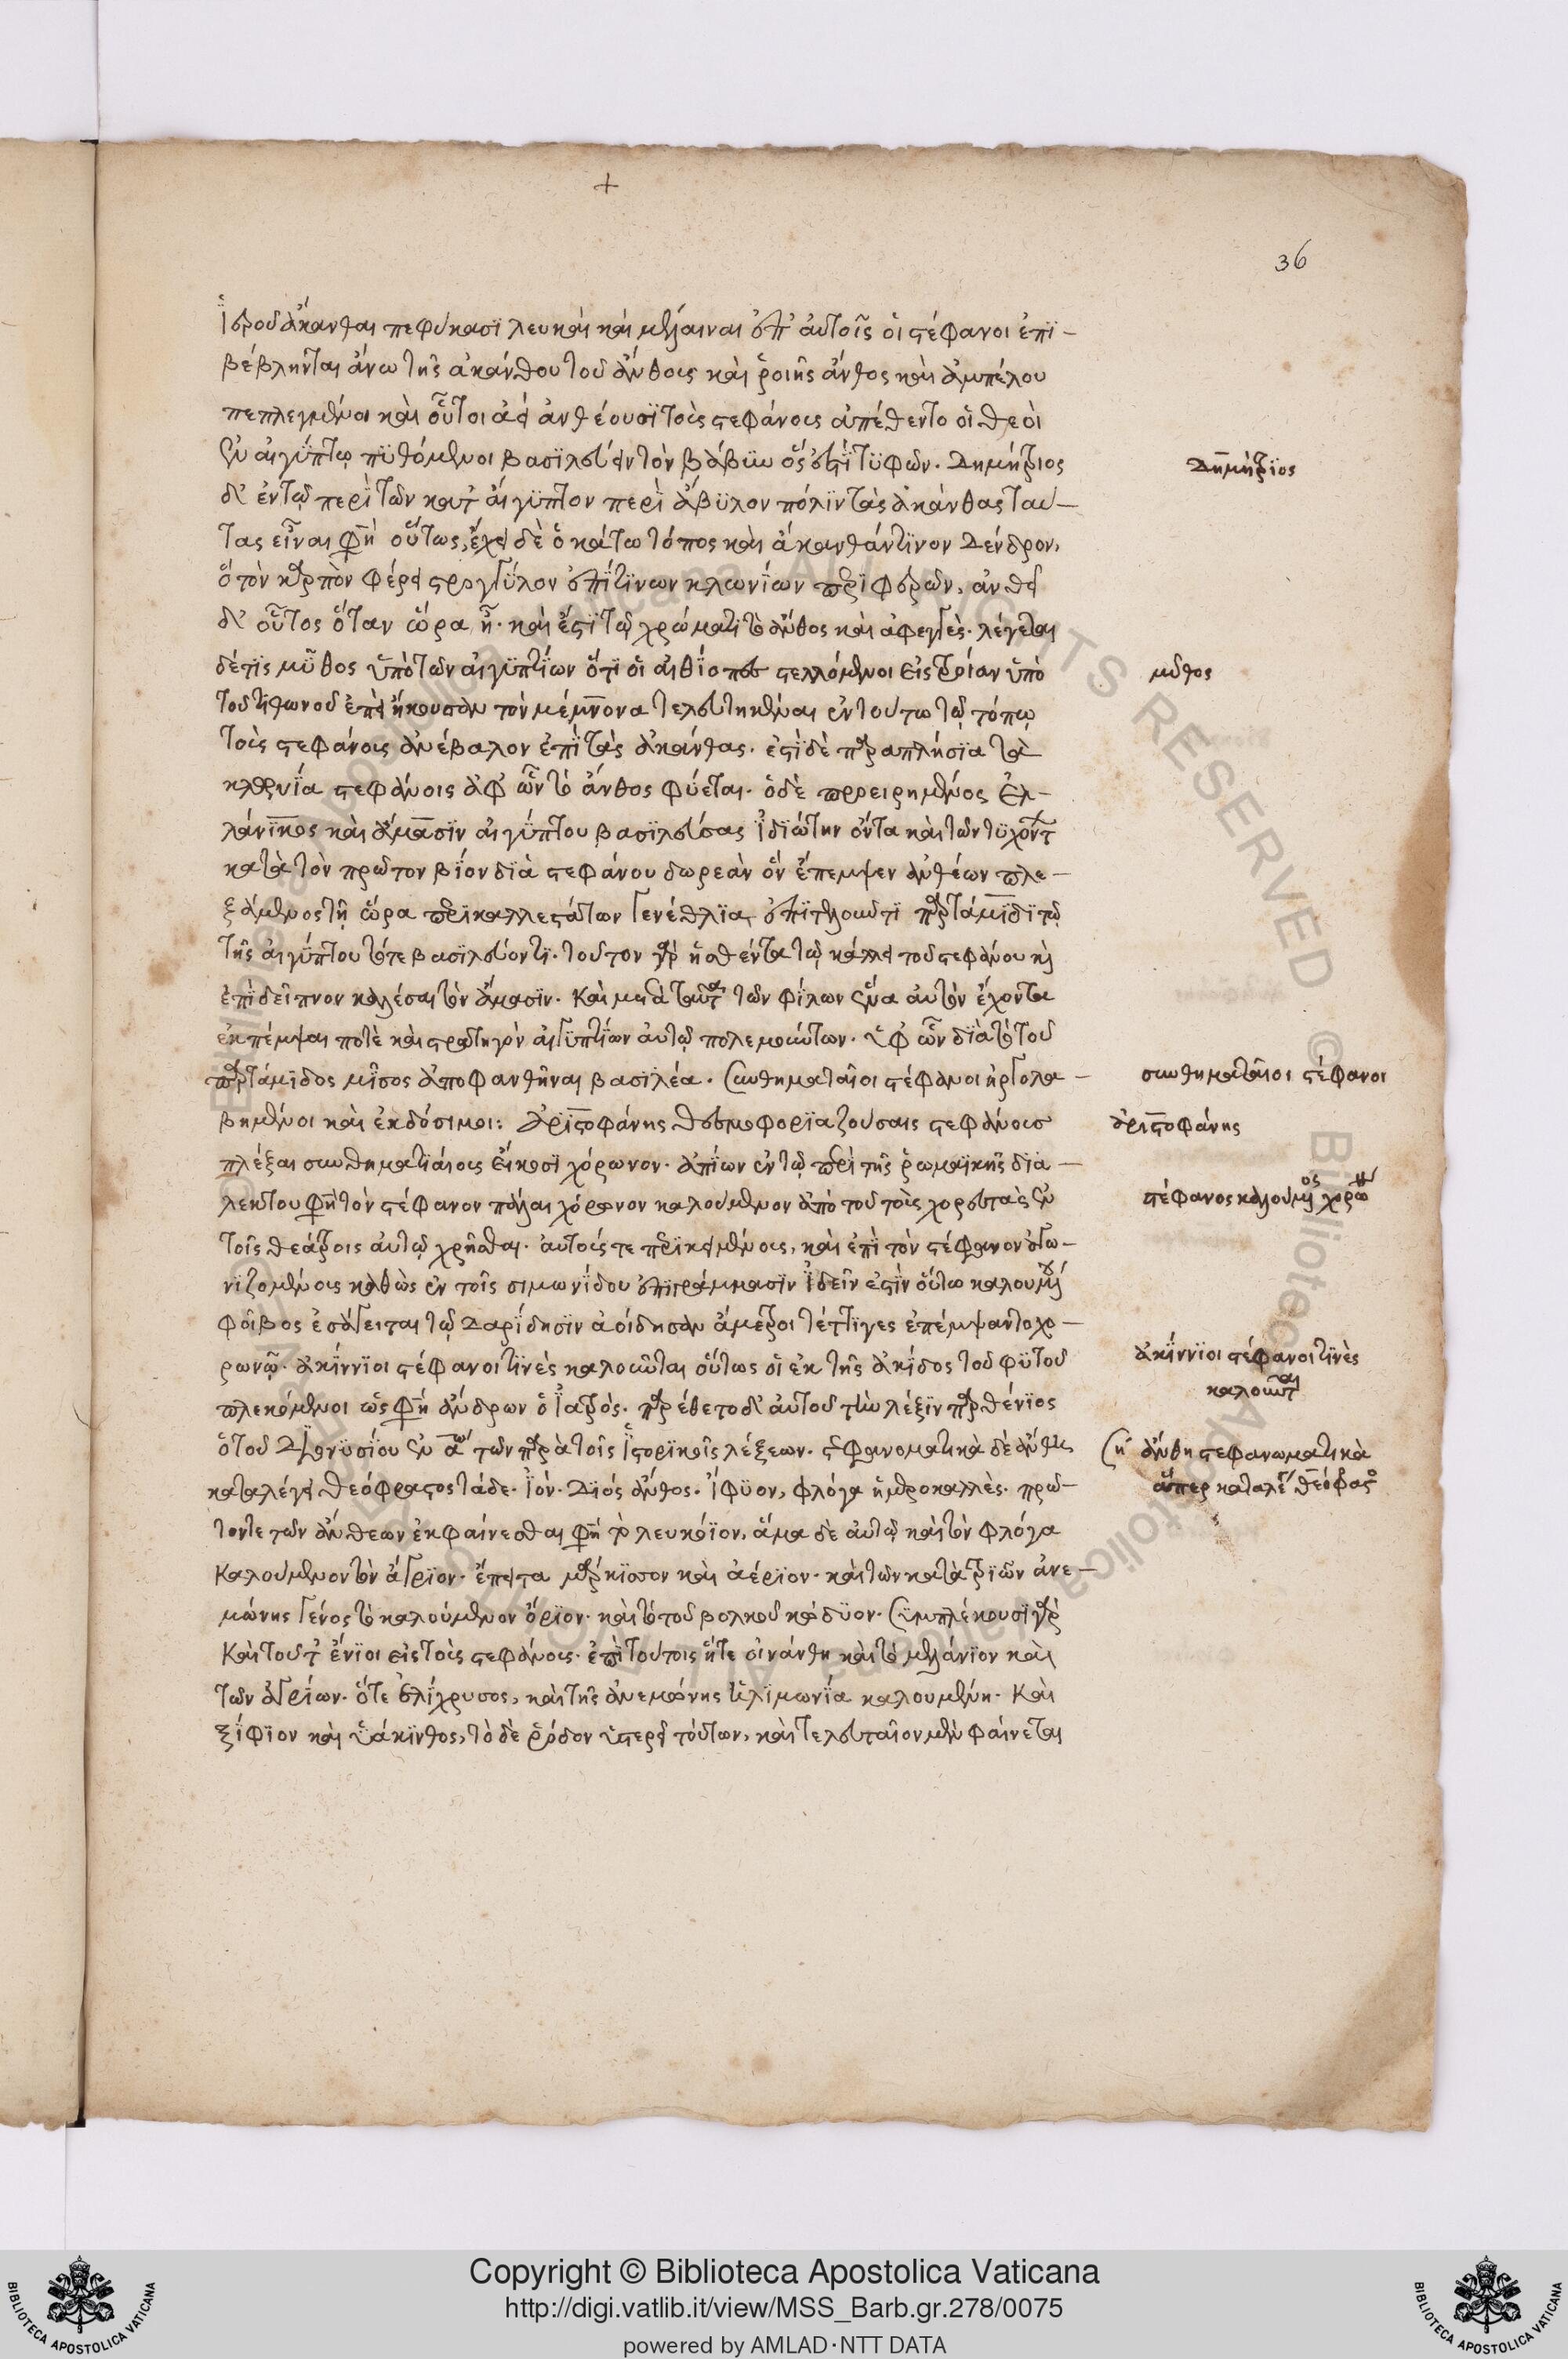 +
36
ἱεροῦ ἄκανθαι πεφύκασϊ λευκαὶ καὶ μέλαιναι ἐπ' αὐτοῖς οἱ στέφανοι ἐπϊ-
βέβληνται ἄνω τῆς ἀκάνθου τοῦ ἄνθους καὶ ῥοιῆς ἄνθος καὶ ἀμπέλου
πεπλεγμένοι καὶ οὗτοι ἀεὶ ἀνθέουσϊ τοὺς στεφάνους ἀπέθεντο οἱ θεοὶ
ἐν αἰγύπτω πϋθόμενοι βασϊλεύειν τὸν βάβϋν ὅς ἐστϊ τϋφῶν. Δημήτριος
δ' ἐν τῷ περὶ τῶν κατ' ἀίγϋπτον περὶ ἄβϋλον πόλϊν τὰς ἀκάνθας ταύ-
τας εἶναι φησὴ οὕτως, ἔχει δὲ ὁ κάτω τόπος καὶ ἀκανθάντϊνον Δένδρον,
ὃ τὸν καρπὸν φέρει στρογγύλον ἐπΐ τϊνων κλωνΐων περϊφερῶν, ἀνθεῖ
δ' οὗτος ὅταν ὥρα ἦ. καὶ ἔστϊ τῷ χρώματι τὸ ἄνθος καὶ ἀφεγγὲς. λέγεται
δέ τις μῦθος ὑπὸ τῶν αἰγϋπτΐων ὅτι οἱ αἰθΐοπες στελλόμενοι εἰς τροίαν ὑπὸ
τοῦ τϊθωνοῦ ἐπεὶ ἤκουσαν τὸν μέμνονα τελευτηκέναι ἐν τούτω τῷ τόπῳ
τοὺς στεφάνους ἀνέβαλον ἐπὶ τὰς ἀκάνθας. ἐστὶ δὲ παραπλήσϊα τὰ
κλωνΐα στεφάνοις ἀφ' ὧν τὸ ἄνθος φύεται. ὁ δὲ προειρημένος Ἑλ-
λάνϊκος καὶ ἄμασϊν αἰγύπτου βασϊλεύσας ἰδϊώτην ὄντα καὶ τῶν τϋχόντ
κατὰ τὸν πρῶτον βΐον δϊὰ στεφάνου δωρεὰν ὃν ἔπεμψεν ἀνθέων πλε-
ξάμενος τῇ ὥρα περϊκαλλεστάτων γενέθλϊα ἐπϊτελοῦντϊ παρταμϊδϊ τῷ
τῆς αἰγύπτου τότε βασϊλεύοντϊ. τοῦτον γὰρ ἡσθέντα τῷ κάλλει τοῦ στεφάνου κὴ
ἐπὶ δεῖπνον καλέσαι τὸν ἄμασϊν. Καὶ μετὰ ταῦτα τῶν φΐλων ἕνα αὐτὸν ἔχοντα
ἐκπέμψαι ποτὲ καὶ στρατηγὸν αἰγϋπτΐων αὐτῷ πολεμούντων. ὑφ' ὧν δϊὰ τὸ τοῦ
παρτάμϊδος μῖσος ἀποφανθῆναι βασϊλέα. Συνθηματαῖοι στέφανοι ἠργολα-
βημένοι καὶ ἐκδόσιμοι: ἀρϊστοφάνης θεσμοφορϊαζούσαις στεφάνους
πλέξαι συνθηματιάιους εἴκοσϊ χόρωνον. ἀπΐων ἐν τῷ περὶ τῆς ῥωμαϊκῆς δϊα-
λέκτου φησὴ τὸν στέφανον πάλαι χόρωνον καλούμενον ἀπὸ τοῦ τοὺς χορευτὰς ἐν
τοῖς θεάτροις αὐτῷ χρῆσθαι. αὐτούς τε περϊκειμένους, καὶ ἐπὶ τὸν στέφανον ἀγω-
νιζομένους καθὼς ἐν τοῖς σιμωνΐδου ἐπιγράμμασϊν ἰδεῖν ἐστὶν οὕτω καλούμενον
φοῖβος ἐσάγειται τῷ Δαρΐδησϊν ἀοίδησαν ἀμέτροι τέττϊγες ἐπέμψαντο χο-
ρωνῷ. ἀκΐννϊοι στέφανοι τϊνὲς καλοῦνται οὕτως οἱ ἐκ τῆς ἀκΐδος τοῦ φϋτοῦ
πλεκόμενοι ὥς φησὴ ἄνδρων ὁ ϊατρός. παρέθετο δ' αὐτοῦ τὴν λέξϊν παρθένϊος
ὁ τοῦ Διονϋσΐου ἐν αω τῶν παρὰ τοῖς ϊστορϊκοῖς λέξεων. στεφανοματικὰ δὲ ἄνθη
καταλέγει θεόφραστος τάδε. ϊόν. Δϊὸς ἄνθος. ΐφϋον, φλόγα ἡμεροκαλλὲς. πρῶ-
τον τε τῶν ἀνθέων ἐκφαίνεσθαι φησὴ τὸ λευκόϊον, ἅμα δὲ αὐτῷ καὶ τὸν φλόγα
καλούμενον τὸν ἄγρϊον. ἔπειτα νάρκϊσσον καὶ ἀέρϊον. καὶ τῶν κατὰ τρϊῶν ἀνε-
μώνης γένος τὸ καλούμενον ὄρϊον. καὶ τὸ τοῦ βολκοῦ κώδϋον. Συμπλέκουσϊ γὰρ
καὶ τοῦτ' ἔνϊοι εἰς τοὺς στεφάνους. ἐπὶ τούτοις ἥτε οἰνάνθη καὶ τὸ μελάνϊον καὶ
τῶν ἀγρΐων. ὅτε ἑλΐχρυσος, καὶ τῆς ἀνεμώνης ἡ λϊμωνΐα καλουμένη. Καὶ
ξΐφϊον καὶ ὑάκϊνθος, τὸ δὲ ῥόδον ὑστερεῖ τούτων, καὶ τελευταῖον μὲν φαίνεται
Δημήτρϊος
μῦθος
συνθηματαῖοι στέφανοι
ἀρϊστοφάνης
στέφανος καλούμενος χορων
ἀκΐννϊοι στέφανοι τϊνὲς
καλοῦνται
ἄνθη στεφανωματικὰ
ἅπερ καταλέγ θεόφραστο
Copyright © Biblioteca Apostolica Vaticana
http://digi.vatlib.it/view/MSS_Barb.gr.278/0075
powered by AMLAD·NTT DATA
BIBLIOTECA APOSTOLICA VATICANA
BIBLIOTECA APOSTOLICA VATICANA